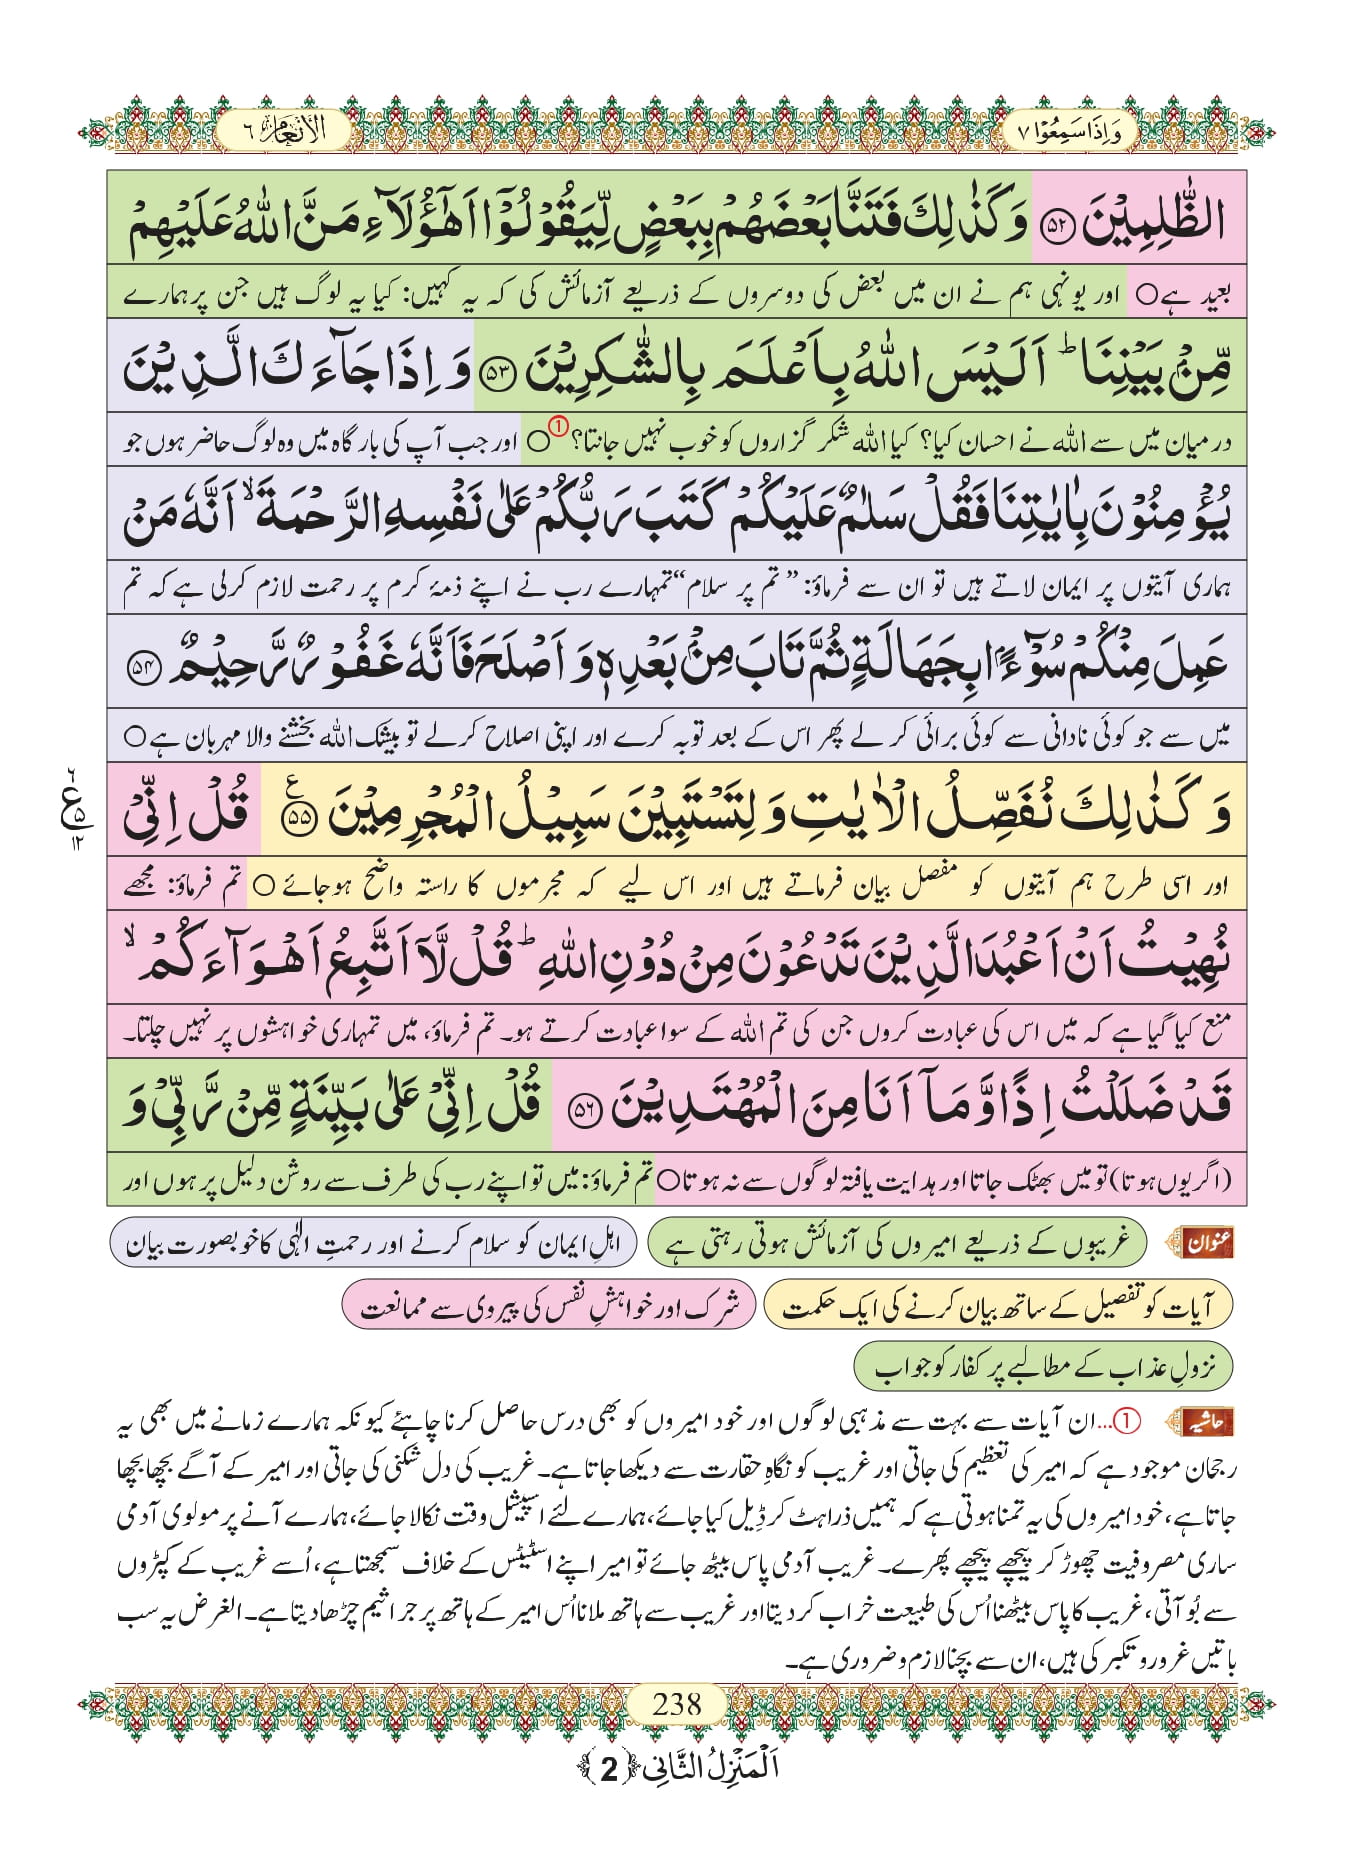 وَاِذَا سَمِعُوْا ٧
الانعام ٦
الظّٰلِمِيْنَ ﴿۵۲﴾ وَ كَذٰلِكَ فَتَنَّا بَعْضَهُمْ بِبَعْضٍ لِّيَقُوْلُوْۤا اَهٰۤؤُلَآءِ مَنَّ اللّٰهُ عَلَيْهِمْ
بعید ہے○ اور یونہی ہم نے ان میں بعض کی دوسروں کے ذریعے آزمائش کی کہ یہ کہیں: کیا یہ لوگ ہیں جن پر ہمارے
مِّنْۢ بَيْنِنَا ؕ اَلَيْسَ اللّٰهُ بِاَعْلَمَ بِالشّٰكِرِيْنَ ﴿۵۳﴾ وَ اِذَا جَآءَكَ الَّذِيْنَ
درمیان میں سے اللہ نے احسان کیا؟ کیا اللہ شکر گزاروں کو خوب نہیں جانتا؟ ①○ اور جب آپ کی بارگاہ میں وہ لوگ حاضر ہوں جو
يُؤْمِنُوْنَ بِاٰيٰتِنَا فَقُلْ سَلٰمٌ عَلَيْكُمْ كَتَبَ رَبُّكُمْ عَلٰى نَفْسِهِ الرَّحْمَةَ ۙ اَنَّهٗ مَنْ
ہماری آیتوں پر ایمان لاتے ہیں تو ان سے فرماؤ: ”تم پر سلام“ تمہارے رب نے اپنے ذمۂ کرم پر رحمت لازم کرلی ہے کہ تم
عَمِلَ مِنْكُمْ سُوْٓءًۢا بِجَهَالَةٍ ثُمَّ تَابَ مِنْۢ بَعْدِهٖ وَ اَصْلَحَ فَاَنَّهٗ غَفُوْرٌ رَّحِيْمٌ ﴿۵۴﴾
میں سے جو کوئی نادانی سے کوئی برائی کر لے پھر اس کے بعد توبہ کرے اور اپنی اصلاح کرلے تو بیشک اللہ بخشنے والا مہربان ہے○
وَ كَذٰلِكَ نُفَصِّلُ الْاٰيٰتِ وَ لِتَسْتَبِيْنَ سَبِيْلُ الْمُجْرِمِيْنَ ﴿۵۵﴾ ع قُلْ اِنِّيْ
٦ ع ۵ ۱۲
اور اسی طرح ہم آیتوں کو مفصل بیان فرماتے ہیں اور اس لیے کہ مجرموں کا راستہ واضح ہوجائے○ تم فرماؤ: مجھے
نُهِيْتُ اَنْ اَعْبُدَ الَّذِيْنَ تَدْعُوْنَ مِنْ دُوْنِ اللّٰهِ ؕ قُلْ لَّاۤ اَتَّبِعُ اَهْوَآءَكُمْ ۙ
منع کیا گیا ہے کہ میں اس کی عبادت کروں جن کی تم اللہ کے سوا عبادت کرتے ہو۔ تم فرماؤ، میں تمہاری خواہشوں پر نہیں چلتا۔
قَدْ ضَلَلْتُ اِذًا وَّ مَاۤ اَنَا مِنَ الْمُهْتَدِيْنَ ﴿۵۶﴾ قُلْ اِنِّيْ عَلٰى بَيِّنَةٍ مِّنْ رَّبِّيْ وَ
(اگر یوں ہوتا) تو میں بھٹک جاتا اور ہدایت یافتہ لوگوں سے نہ ہوتا○ تم فرماؤ: میں تو اپنے رب کی طرف سے روشن دلیل پر ہوں اور
عنوان غریبوں کے ذریعے امیروں کی آزمائش ہوتی رہتی ہے اہلِ ایمان کو سلام کرنے اور رحمتِ الٰہی کا خوبصورت بیان
آیات کو تفصیل کے ساتھ بیان کرنے کی ایک حکمت شرک اور خواہشِ نفس کی پیروی سے ممانعت
نزولِ عذاب کے مطالبے پر کفار کو جواب
حاشیہ ①...ان آیات سے بہت سے مذہبی لوگوں اور خود امیروں کو بھی درس حاصل کرنا چاہئے کیونکہ ہمارے زمانے میں بھی یہ
رجحان موجود ہے کہ امیر کی تعظیم کی جاتی اور غریب کو نگاہِ حقارت سے دیکھا جاتا ہے۔ غریب کی دل شکنی کی جاتی اور امیر کے آگے بچھا بچھا
جاتا ہے، خود امیروں کی یہ تمنا ہوتی ہے کہ ہمیں ذرا ہٹ کر ڈِیل کیا جائے، ہمارے لئے اسپیشل وقت نکالا جائے، ہمارے آنے پر مولوی آدمی
ساری مصروفیت چھوڑ کر پیچھے پیچھے پھرے۔ غریب آدمی پاس بیٹھ جائے تو امیر اپنے اسٹیٹس کے خلاف سمجھتا ہے، اُسے غریب کے کپڑوں
سے بُو آتی، غریب کا پاس بیٹھنا اُس کی طبیعت خراب کر دیتا اور غریب سے ہاتھ ملانا اُس امیر کے ہاتھ پر جراثیم چڑھا دیتا ہے۔ الغرض یہ سب
باتیں غرور و تکبر کی ہیں، ان سے بچنا لازم و ضروری ہے۔
238
اَلْمَنْزِلُ الثَّانِی ﴿2﴾